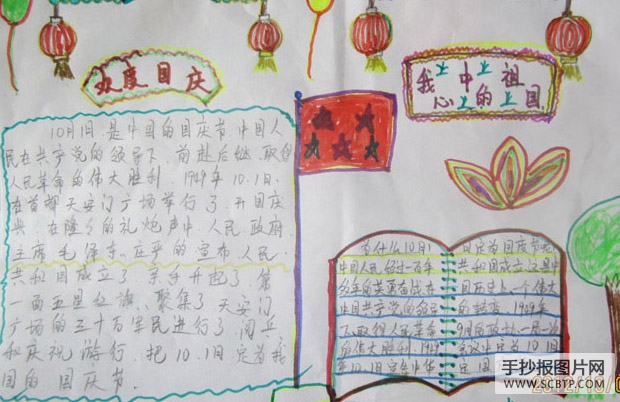 欢度国庆
10月1日,是中国的国庆节中国人
民在共产党的领导下,前赴后继,取得
人民革命的伟大胜利,1949年10.1日,
在首都天安门广场举行了开国庆
典,在隆隆的礼炮声中,人民政府
主席毛泽东庄严的宣布人民
共和国成立了,亲手升起了第
一面五星红旗,聚集了天安门
广场的三十万军民进行了阅兵
和庆祝游行,把10.1日定为我
国的国庆节.
我心中的祖国
为什么10月1
中国人民经过一百年
中国共产党的领导
下,取得人民革命
的伟大胜利,1949
年10.1日宣布中华
日定为国庆节呢
共和国成立,这是中
国历史上一个伟大
的转变,1949年
定国
手抄报图片网
WWW.SCBTP.COM